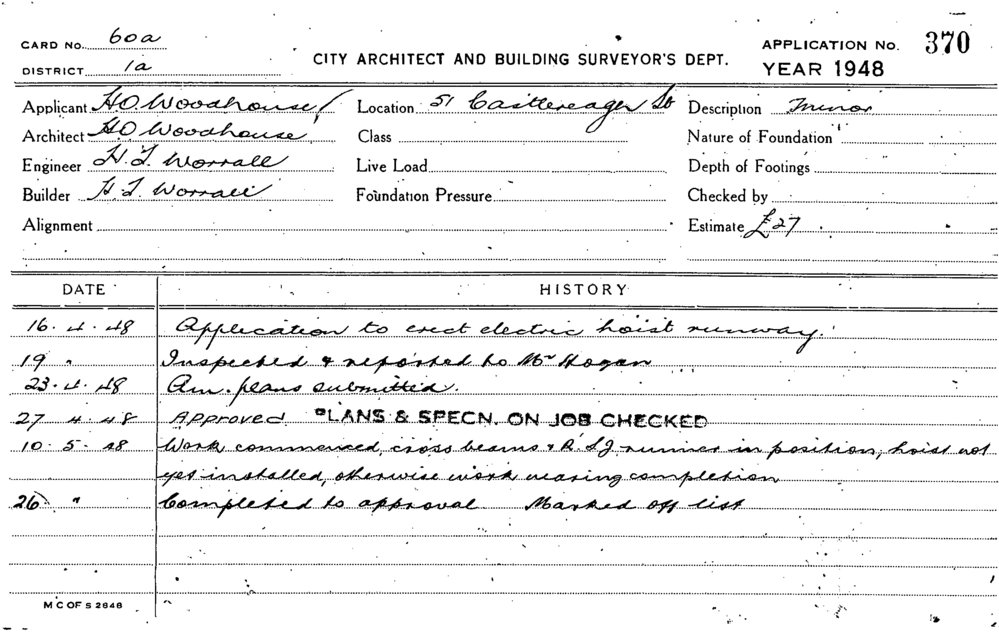 CARD No. 60a
DISTRICT 1a
CITY ARCHITECT AND BUILDING SURVEYOR'S DEPT.
APPLICATION No. 370
YEAR 1948
Applicant H O Woodhouse Location 51 Castlereagh St Description Minor
Architect H O Woodhouse Class Nature of Foundation
Engineer H. J. Worrall Live Load Depth of Footings
Builder H. J. Worrall Foundation Pressure Checked by
Alignment Estimate £27
DATE HISTORY
16. 4. 48 Application to erect electric hoist runway.
19 " Inspected & reported to Mr Hogan
23. 4. 48 Am. plans submitted.
27 4. 48 Approved PLANS & SPECN. ON JOB CHECKED
10. 5. 48 Work commenced, cross beams & R.S.J. runner in position, hoist not
yet installed, otherwise work nearing completion
26 " Completed to approval Marked off list
M C OF S 2848